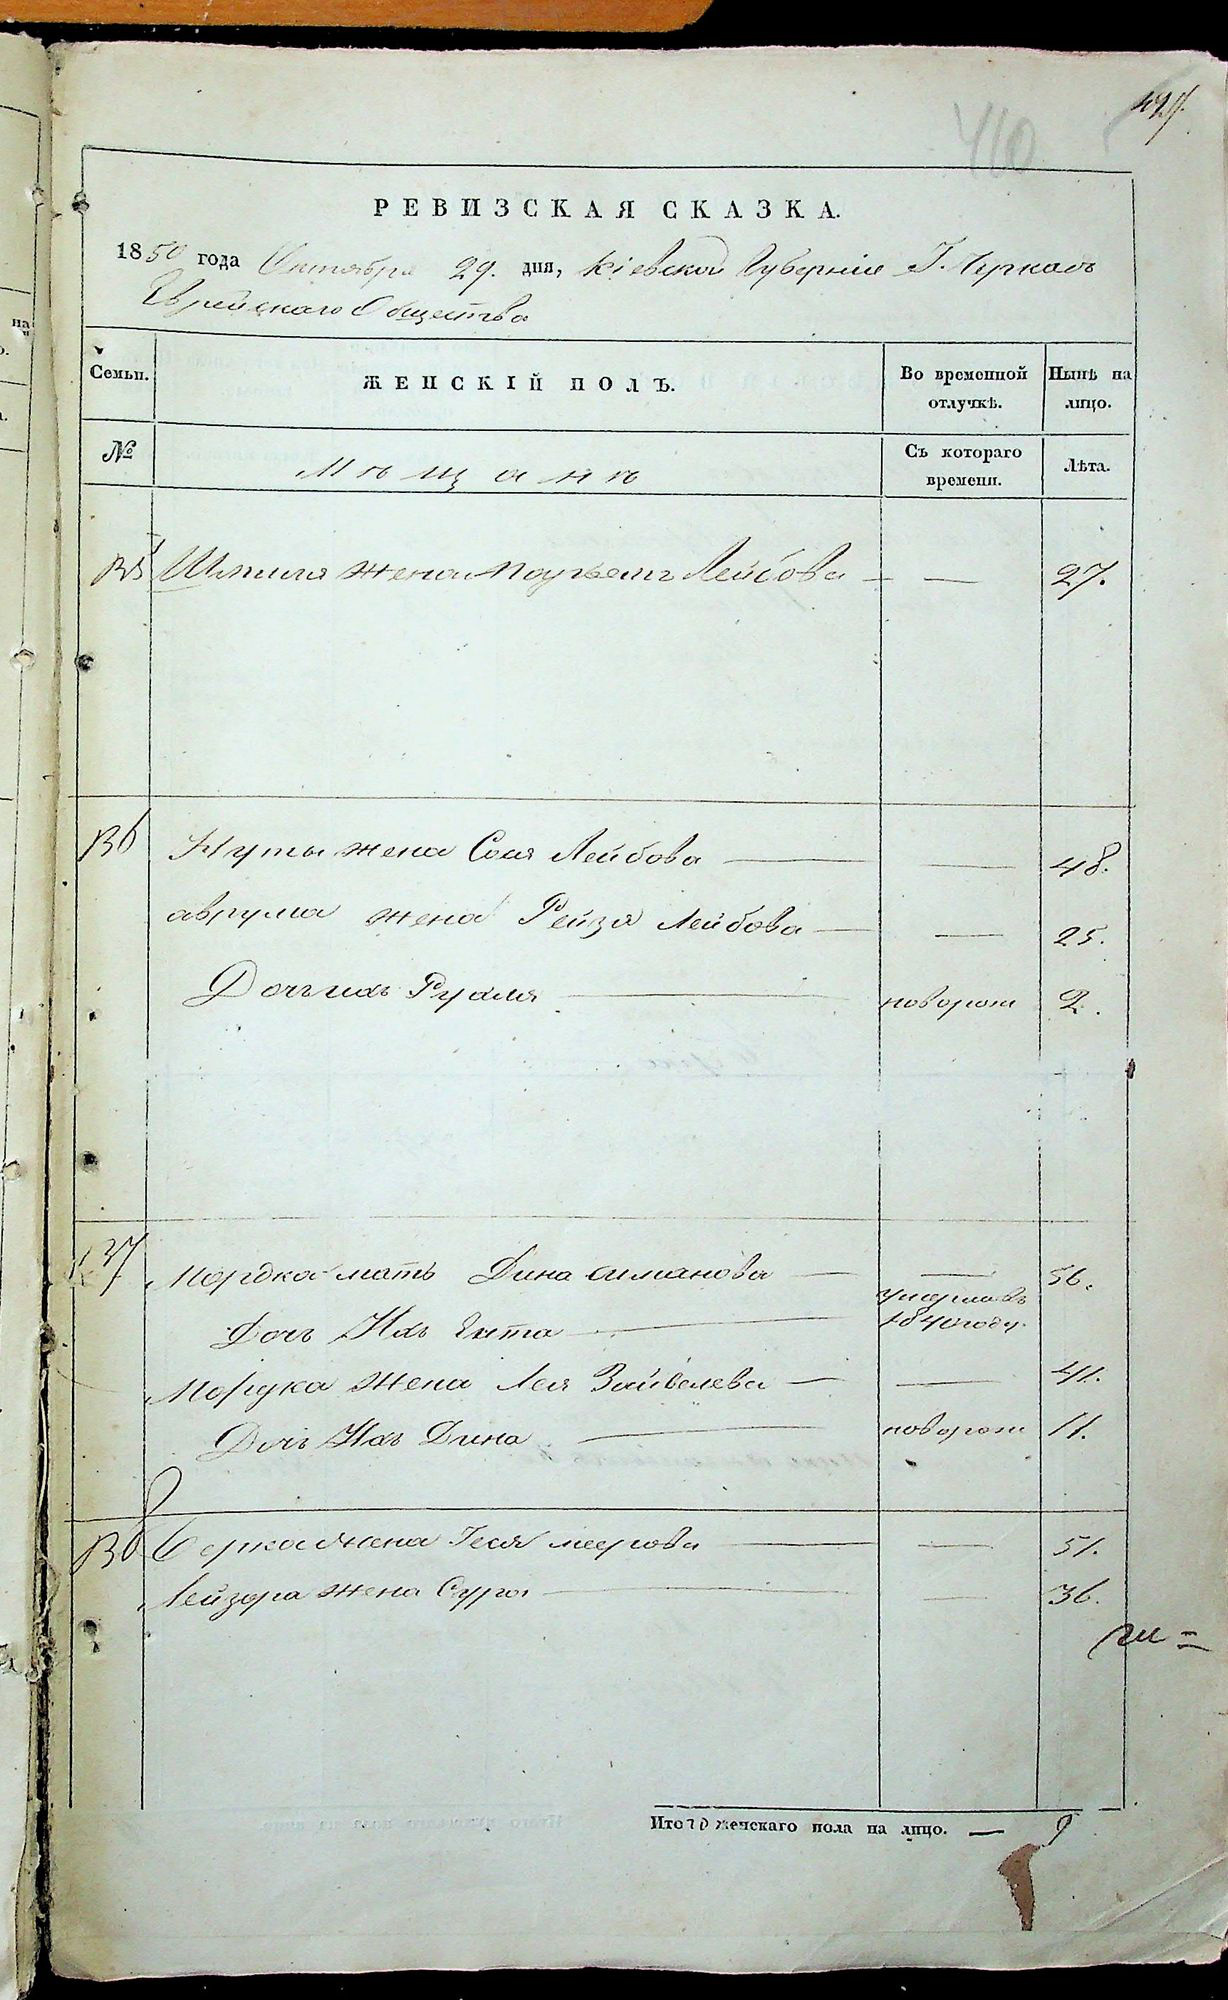 410
РЕВИЗСКАЯ СКАЗКА.
1850 года Октября 29. дня, Кіевской Губерніи Г. Черкасъ
Еврейскаго Общества
Семьи. ЖЕНСКІЙ ПОЛЪ. Во временной отлучкѣ. Нынѣ на лицо.
№ Мѣщанѣ Съ котораго времени. Лѣта.
135 Шмиля жена Лейбова — — 27.
136 Нуты жена Сося Лейбова — — 48.
аврума жена Рейзя Лейбова — — 25.
Дочь ихъ Рухля — новорож 2.
137 Мордка мать Дина Симанова — — 56.
Дочь Ихъ Ента — умерла въ 1840 году.
Мордка Жена Лея Зайвелева — — 41.
Дочь Ихъ Дина — новорож 11.
138 Берка жена Геся меерова — — 51.
Лейзора жена Сура — — 36.
Итого женскаго пола на лицо. — 9